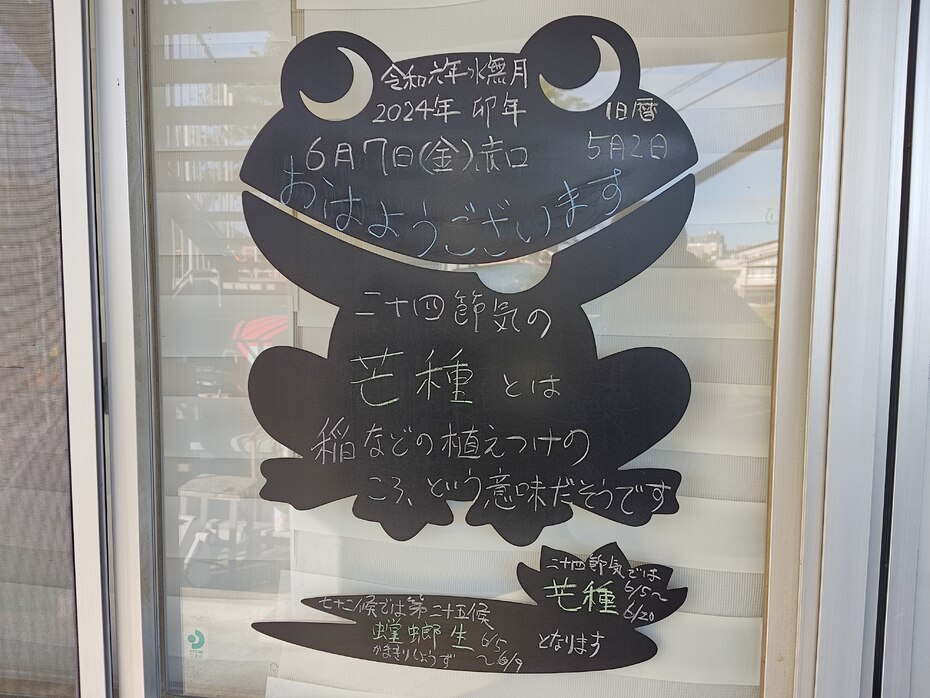 令和六年水無月
2024年 卯年
旧暦
6月7日(金)赤口
5月2日
おはようございます
二十四節気の
芒種とは
稲などの植えつけの
ころ、という意味だそうです
二十四節気では
芒種 6/5～
6/20
となります
七十二候では第二十五候
螳螂生 6/5
かまきりしょうず ～6/9